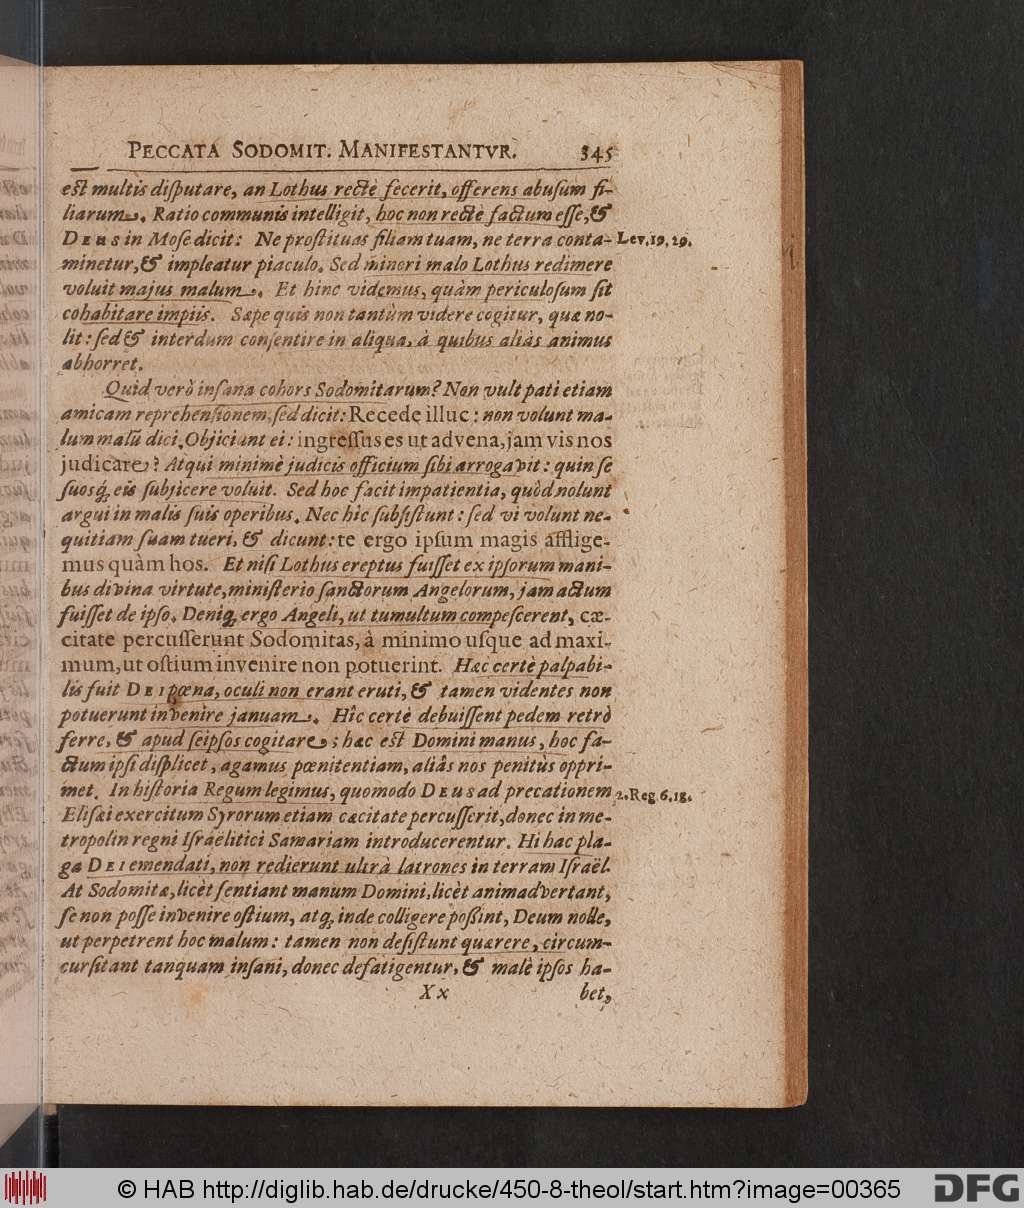 PECCATA SODOMIT. MANIFESTANTVR. 345
est multis disputare, an Lothus rectè fecerit, offerens abusum fi-
liarum. Ratio communis intelligit, hoc non rectè factum esse, &
DEUS in Mose dicit: Ne prostituas filiam tuam, ne terra conta- Lev. 19, 29.
minetur, & impleatur piaculo. Sed minori malo Lothus redimere
voluit majus malum. Et hinc videmus, quàm periculosum sit
cohabitare impiis. Sæpe quis non tantùm videre cogitur, quæ no-
lit: sed & interdum consentire in aliqua, à quibus aliàs animus
abhorret.
Quid verò insana cohors Sodomitarum? Non vult pati etiam
amicam reprehensionem, sed dicit: Recede illuc: non volunt ma-
lum malū dici. Objiciunt ei: ingressus es ut advena, jam vis nos
judicare? Atqui minimè judicis officium sibi arrogavit: quin se
suosq́; eis subjicere voluit. Sed hoc facit impatientia, quòd nolunt
argui in malis suis operibus. Nec hîc subsistunt: sed vi volunt ne-
quitiam suam tueri, & dicunt: te ergo ipsum magis afflige-
mus quàm hos. Et nisi Lothus ereptus fuisset ex ipsorum mani-
bus divina virtute, ministerio sanctorum Angelorum, jam actum
fuisset de ipso. Deniq; ergo Angeli, ut tumultum compescerent, cæ-
citate percusserunt Sodomitas, à minimo usque ad maxi-
mum, ut ostium invenire non potuerint. Hæc certè palpabi-
lis fuit DEI pœna, oculi non erant eruti, & tamen videntes non
potuerunt invenire januam. Hîc certè debuissent pedem retrò
ferre, & apud seipsos cogitare; hæc est Domini manus, hoc fa-
ctum ipsi displicet, agamus pœnitentiam, aliâs nos penitùs oppri-
met. In historia Regum legimus, quomodo DEUS ad precationem 2. Reg 6. 18.
Elisæi exercitum Syrorum etiam cæcitate percusserit, donec in me-
tropolin regni Israëlitici Samariam introducerentur. Hi hac pla-
ga DEI emendati, non redierunt ultrà latrones in terram Israël.
At Sodomitæ, licèt sentiant manum Domini, licèt animadvertant,
se non posse invenire ostium, atq; inde colligere possint, Deum nolle,
ut perpetrent hoc malum: tamen non desistunt quærere, circum-
cursitant tanquam insani, donec defatigentur, & malè ipsos ha-
Xx bet,
© HAB http://diglib.hab.de/drucke/450-8-theol/start.htm?image=00365
DFG